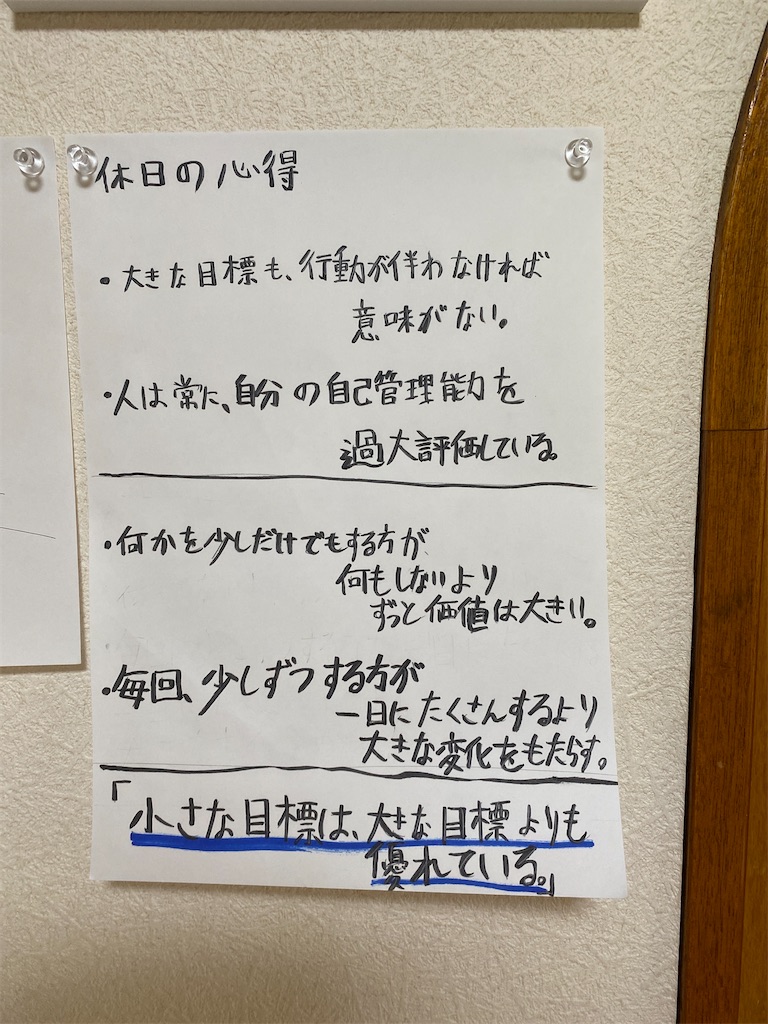 休日の心得
・大きな目標も、行動が伴わなければ
意味がない。
・人は常に、自分の自己管理能力を
過大評価している。
・何かを少しだけでもする方が
何もしないより
ずっと価値は大きい。
・毎回、少しずつする方が
一日にたくさんするより
大きな変化をもたらす。
「小さな目標は、大きな目標よりも
優れている。」